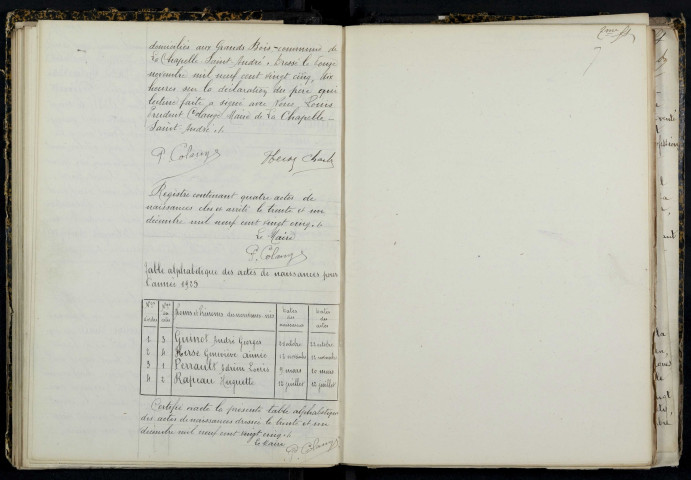 domiciliés aux Grands Bois commune de
La Chapelle Saint André. Dressé le
novembre mil neuf cent vingt cinq, dix
heures sur la déclaration du père qui
lecture faite a signé avec Nous Louis
Prudent Colange Maire de La Chapelle-
Saint-André.
P. Colange
Registre contenant quatre actes de
naissances clos et arrêté le trente et un
décembre mil neuf cent vingt cinq.
Le Maire
P. Colange
Table alphabétique des actes de naissances pour
l'année 1925
Nos Nos Noms et Prénoms des nouveaux nés Dates des naissances Dates des actes
1 3 Guinot André Georges 22 octobre 22 octobre
2 4 Geneviève
3 1 Perrault Louis 9 mars 10 mars
4 2 Rapeau Huguette 12 juillet 12 juillet
Certifié exacte la présente table alphabétique
des actes de naissances dressée le trente et un
décembre mil neuf cent vingt cinq.
Le Maire
P. Colange